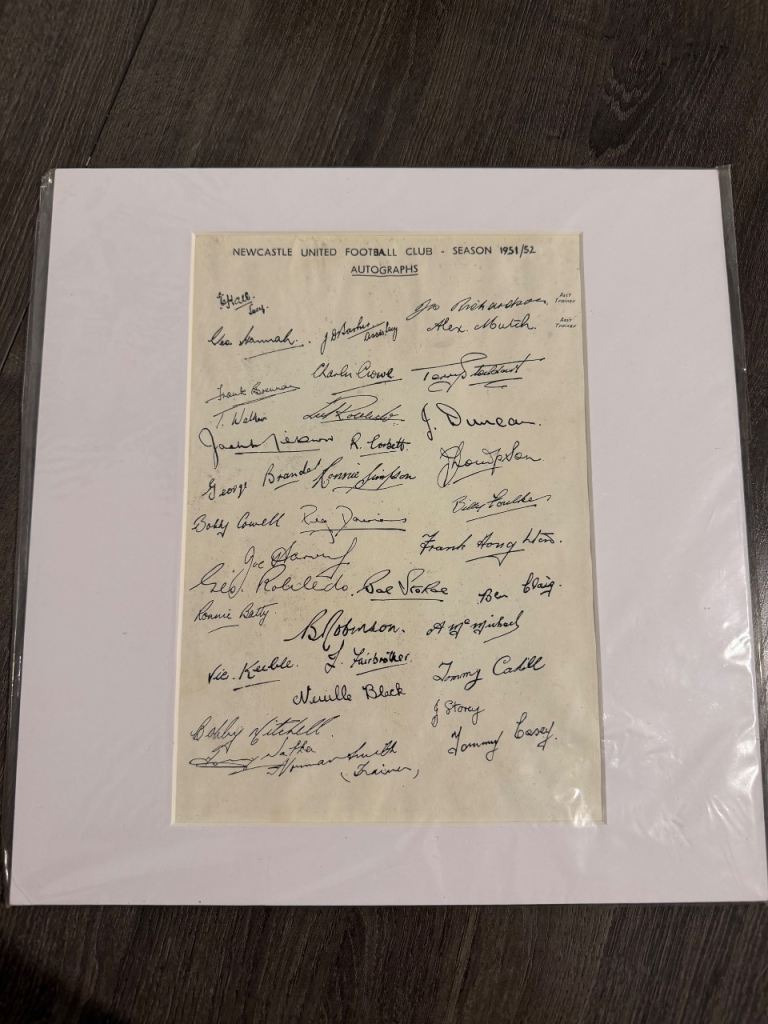 NEWCASTLE UNITED FOOTBALL CLUB - SEASON 1951/52
AUTOGRAPHS
Jno Richardson. Asst Trainer
Alex. Mutch. Asst Trainer
Geo Hannah.
Charlie Crowe
Frank Brennan
T. Walker
Ted Robledo
J. Duncan.
R. Corbett
George Brander
Ronnie Simpson
J Thompson
Billy Foulkes
Bobby Cowell
Reg Davies
Frank Houghton.
Joe Harvey
Geo. Robledo.
Bob Stokoe
Ben Craig.
Ronnie Batty.
B Robinson.
A Mc Michael
Vic. Keeble.
J. Fairbrother.
Tommy Cahill
Neville Black
J Storey
Bobby Mitchell.
Tommy Casey.
Norman Smith
(Trainer)